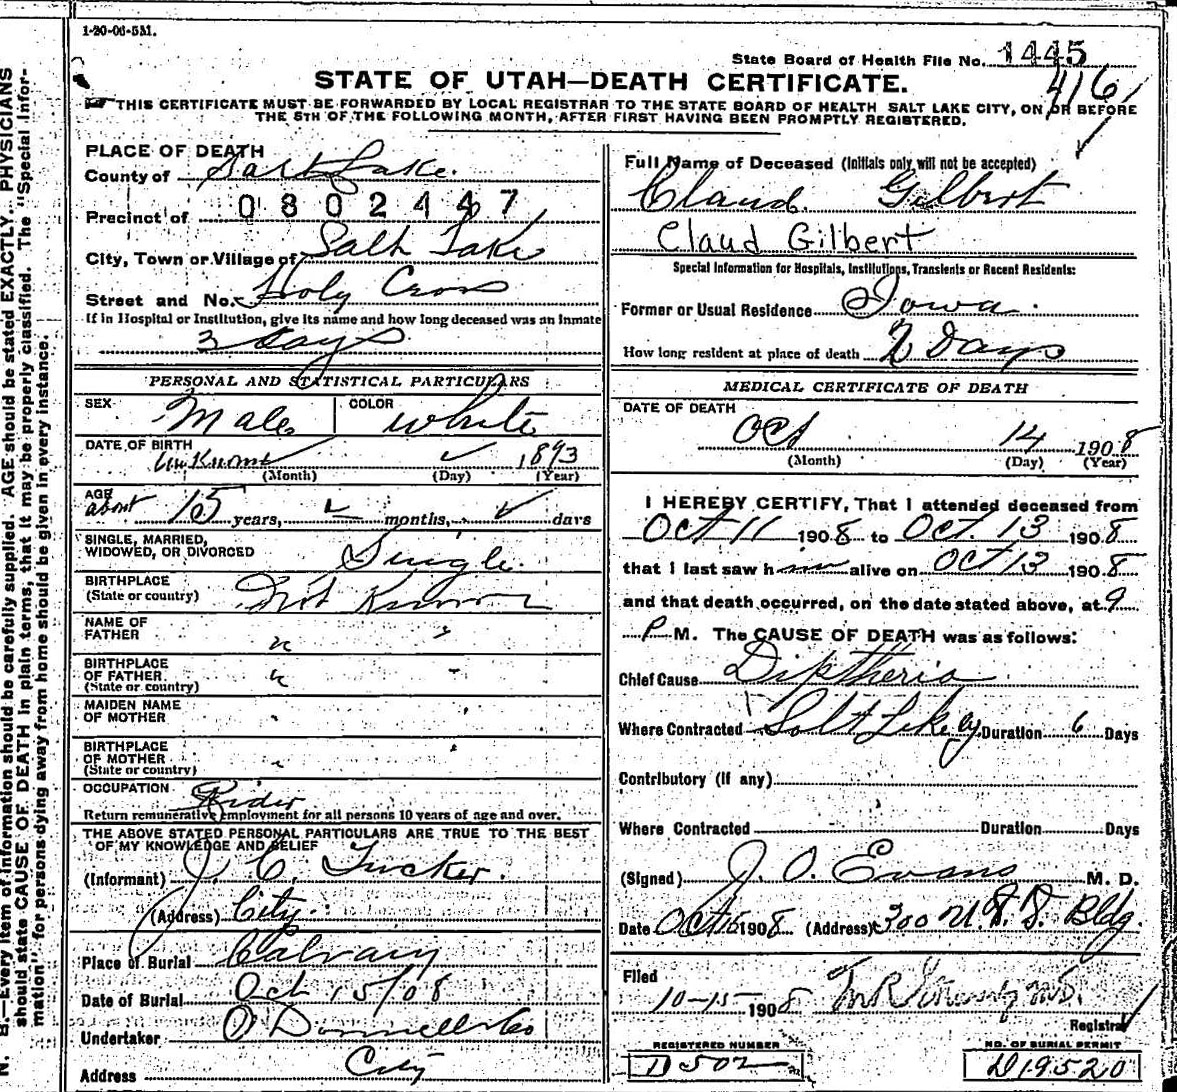 1-20-06-5M.
State Board of Health File No. 1445
416
STATE OF UTAH—DEATH CERTIFICATE.
THIS CERTIFICATE MUST BE FORWARDED BY LOCAL REGISTRAR TO THE STATE BOARD OF HEALTH SALT LAKE CITY, ON OR BEFORE
THE 5TH OF THE FOLLOWING MONTH, AFTER FIRST HAVING BEEN PROMPTLY REGISTERED.
N. B.—Every item of information should be carefully supplied. AGE should be stated EXACTLY. PHYSICIANS
should state CAUSE OF DEATH in plain terms, that it may be properly classified. The "Special Infor-
mation" for persons dying away from home should be given in every instance.
PLACE OF DEATH
County of Salt Lake.
Precinct of 0802447
City, Town or Village of Salt Lake
Street and No. Holy Cross
If in Hospital or Institution, give its name and how long deceased was an Inmate
3 days
PERSONAL AND STATISTICAL PARTICULARS
SEX Male COLOR white
DATE OF BIRTH unknown 1893
(Month) (Day) (Year)
AGE about 15 years, months, days
SINGLE, MARRIED,
WIDOWED, OR DIVORCED Single.
BIRTHPLACE
(State or country) Not Known
NAME OF
FATHER "
BIRTHPLACE
OF FATHER "
(State or country)
MAIDEN NAME
OF MOTHER
BIRTHPLACE
OF MOTHER
(State or country)
OCCUPATION Rider
Return remunerative employment for all persons 10 years of age and over.
THE ABOVE STATED PERSONAL PARTICULARS ARE TRUE TO THE BEST
OF MY KNOWLEDGE AND BELIEF
(Informant) J. C. Tucker.
(Address) City.
Place of Burial Calvary
Date of Burial Oct 15/08
Undertaker O'Donnell & Co
Address City
Full Name of Deceased (Initials only will not be accepted)
Claud. Gilbert
Claud Gilbert
Special Information for Hospitals, Institutions, Transients or Recent Residents:
Former or Usual Residence Iowa.
How long resident at place of death Days
MEDICAL CERTIFICATE OF DEATH
DATE OF DEATH
Oct 14 1908
(Month) (Day) (Year)
I HEREBY CERTIFY, That I attended deceased from
Oct 11 1908 to Oct. 13 1908
that I last saw him alive on Oct 13 1908
and that death occurred, on the date stated above, at 9
P M. The CAUSE OF DEATH was as follows:
Chief Cause Diptheria
Where Contracted Salt Lake Cy Duration 6 Days
Contributory (if any)
Where Contracted Duration Days
(Signed) J. O. Evans M. D.
Date Oct 15 1908 (Address) 300 Bldg.
Filed
10-15-1908
Registrar
REGISTERED NUMBER
D 502
NO. OF BURIAL PERMIT
D19520